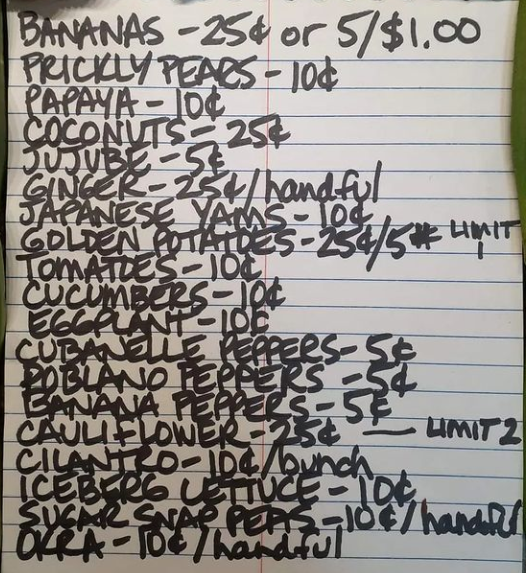 BANANAS - 25¢ or 5/$1.00
PRICKLY PEARS - 10¢
PAPAYA - 10¢
COCONUTS - 25¢
JUJUBE - 5¢
GINGER - 25¢/handful
JAPANESE YAMS - 10¢
GOLDEN POTATOES - 25¢/5# LIMIT 1
TOMATOES - 10¢
CUCUMBERS - 10¢
EGGPLANT - 10¢
CUBANELLE PEPPERS - 5¢
POBLANO PEPPERS - 5¢
BANANA PEPPERS - 5¢
CAULIFLOWER - 25¢ — LIMIT 2
CILANTRO - 10¢/bunch
ICEBERG LETTUCE - 10¢
SUGAR SNAP PEAS - 10¢/handful
OKRA - 10¢/handful